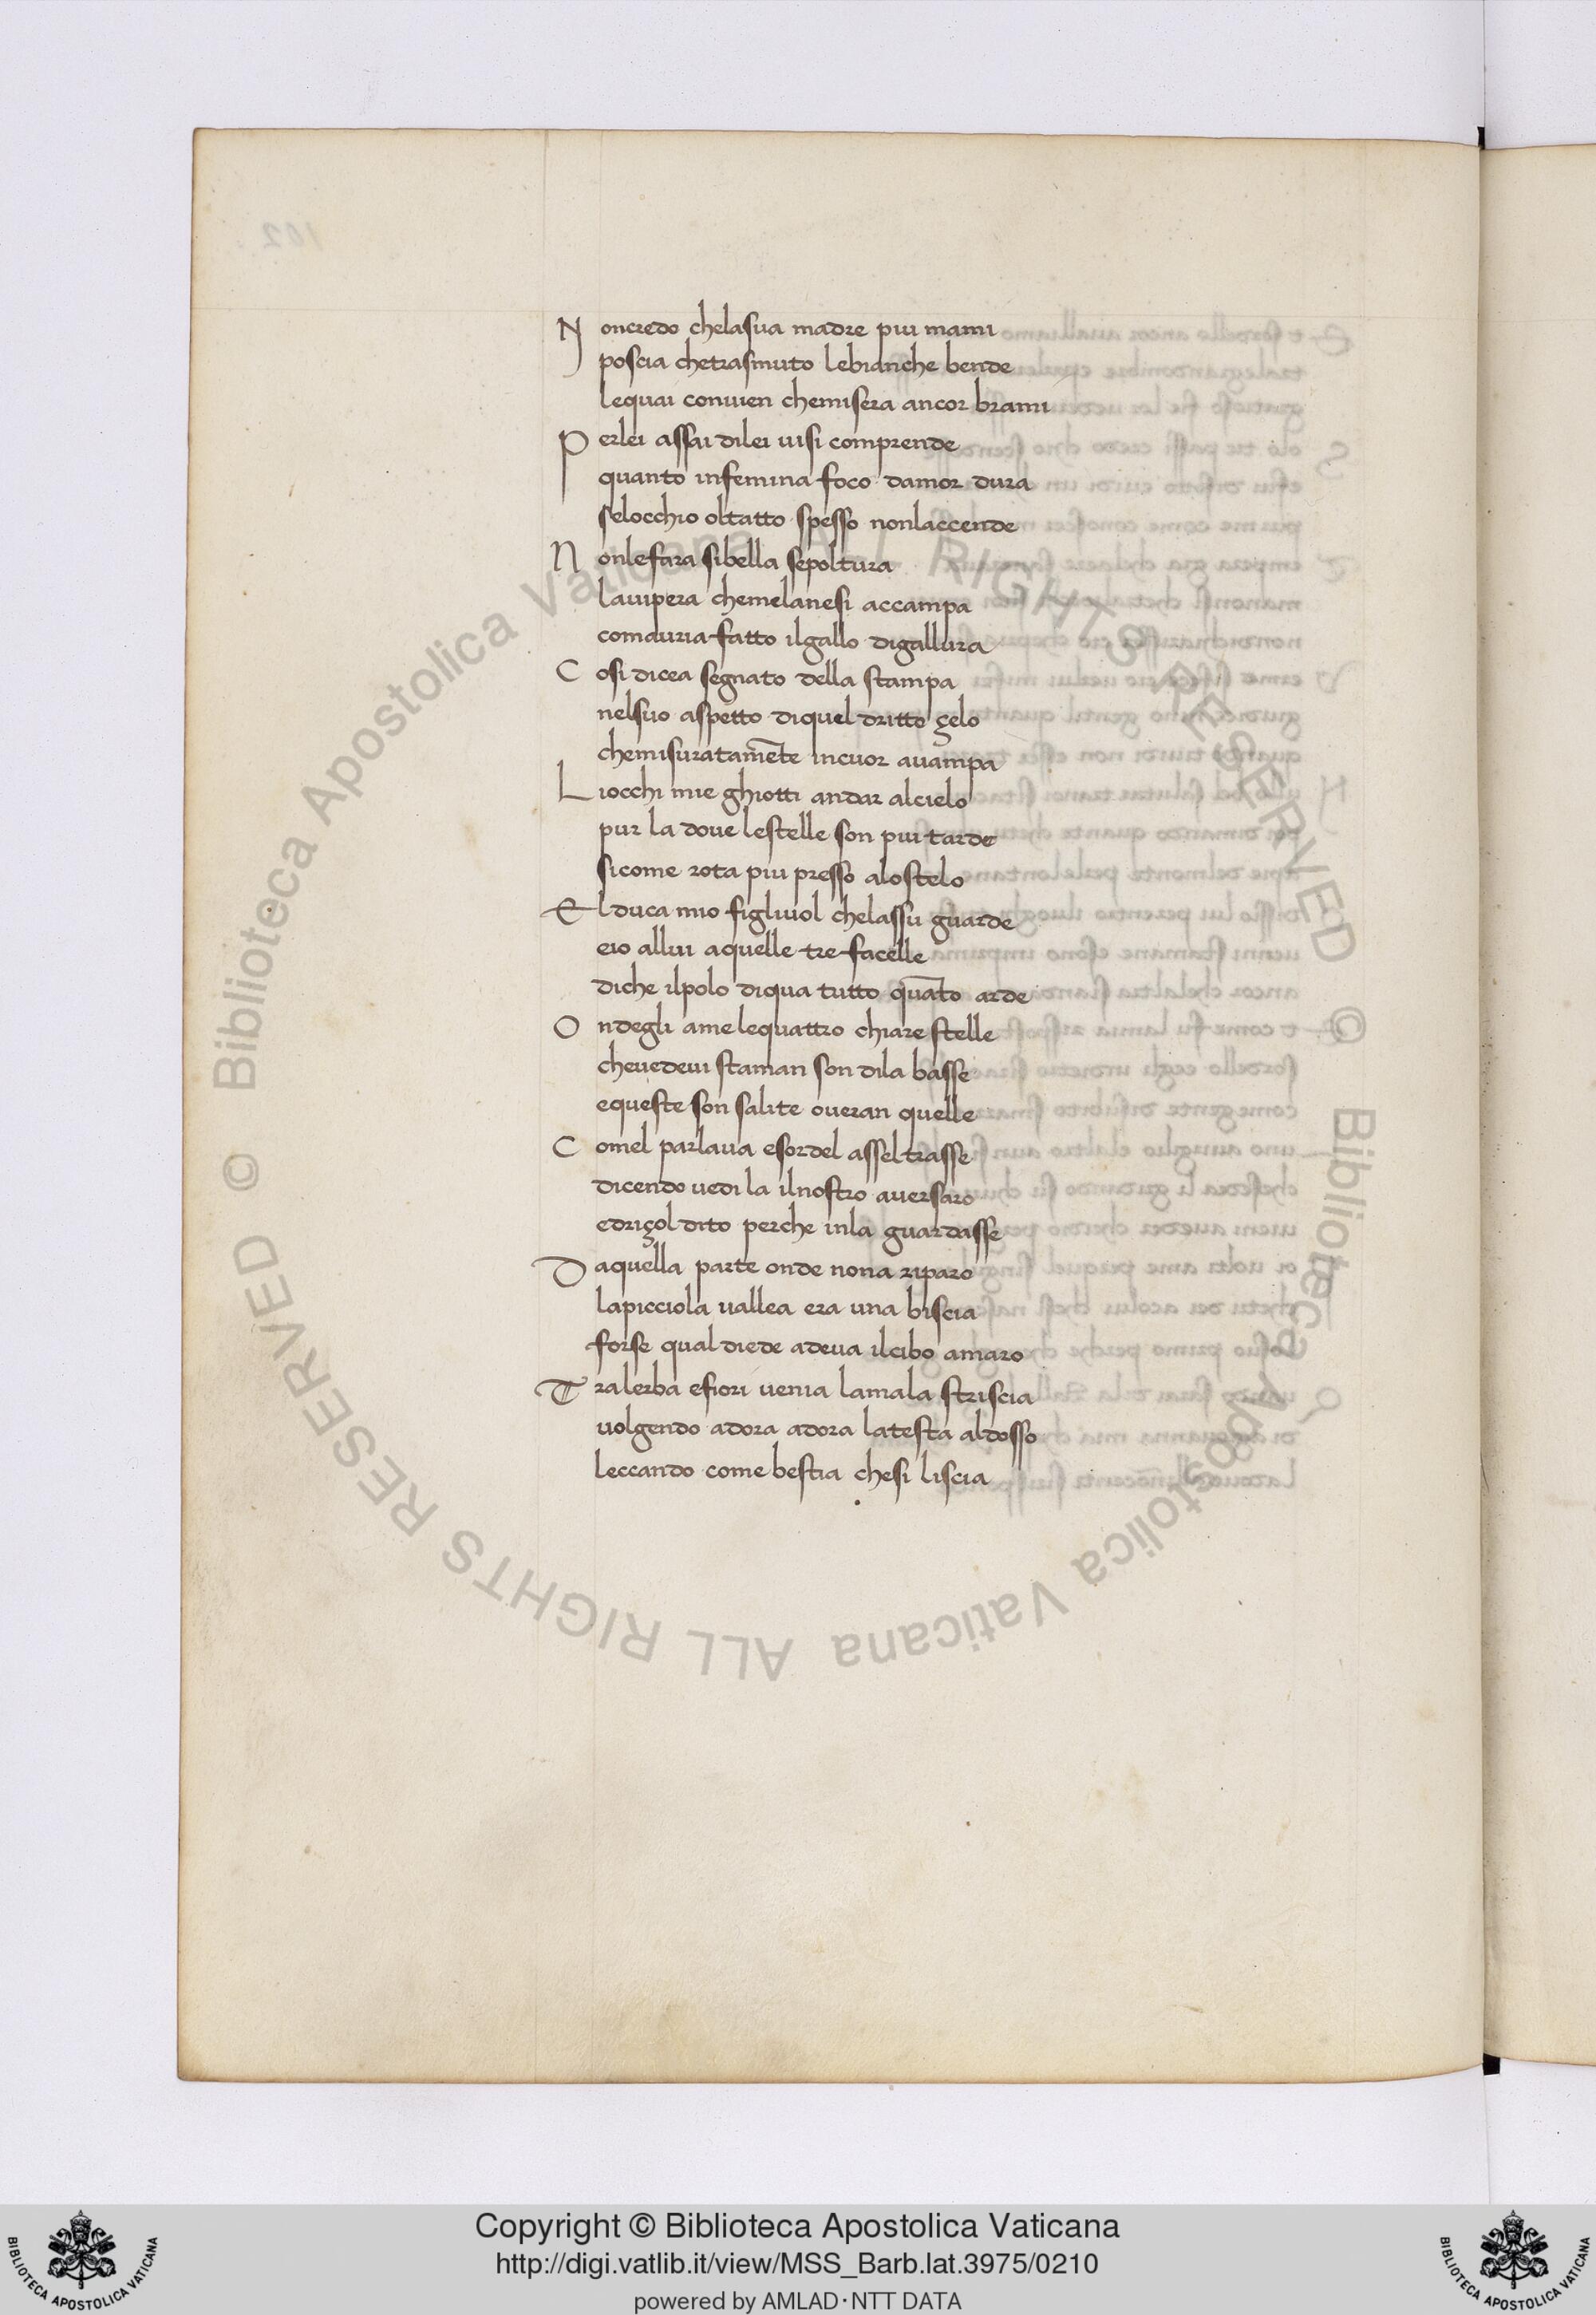 N oncredo chelasua madre piu mami
poscia chetrasmuto lebianche bende
lequai conuien chemisera ancor brami
P erlei assai dilei uisi comprende
quanto infemina foco damor dura
selocchio oltatto spesso nonlaccende
N onlefara sibella sepoltura
lauipera chemelanesi accampa
comauria fatto ilgallo digallura
C osi dicea segnato della stampa
nelsuo aspetto diquel dritto çelo
chemisuratam̅ete incuor auampa
L iocchi mie ghiotti andar alcielo
pur la doue lestelle son piu tarde
sicome rota piu presso alostelo
E lduca mio figliuol chelassu guarde
eio allui aquelle tre facelle
diche ilpolo diqua tutto qua̅to arde
O ndegli ame lequattro chiare stelle
cheuedeui staman son dila basse
equeste son salite oueran quelle
C omel parlaua esordel asseltrasse
dicendo uedi la ilnostro auersaro
edriçol dito perche inla guardasse
D aquella parte onde nona riparo
lapicciola uallea era una biscia
forse qual diede adeua ilcibo amaro
T ralerba efiori uenia lamala striscia
uolgendo adora adora latesta aldosso
leccando come bestia chesi liscia
© Biblioteca Apostolica Vaticana ALL RIGHTS RESERVED © Biblioteca Apostolica Vaticana ALL RIGHTS RESERVED
Copyright © Biblioteca Apostolica Vaticana
http://digi.vatlib.it/view/MSS_Barb.lat.3975/0210
powered by AMLAD·NTT DATA
BIBLIOTECA APOSTOLICA VATICANA
BIBLIOTECA APOSTOLICA VATICANA